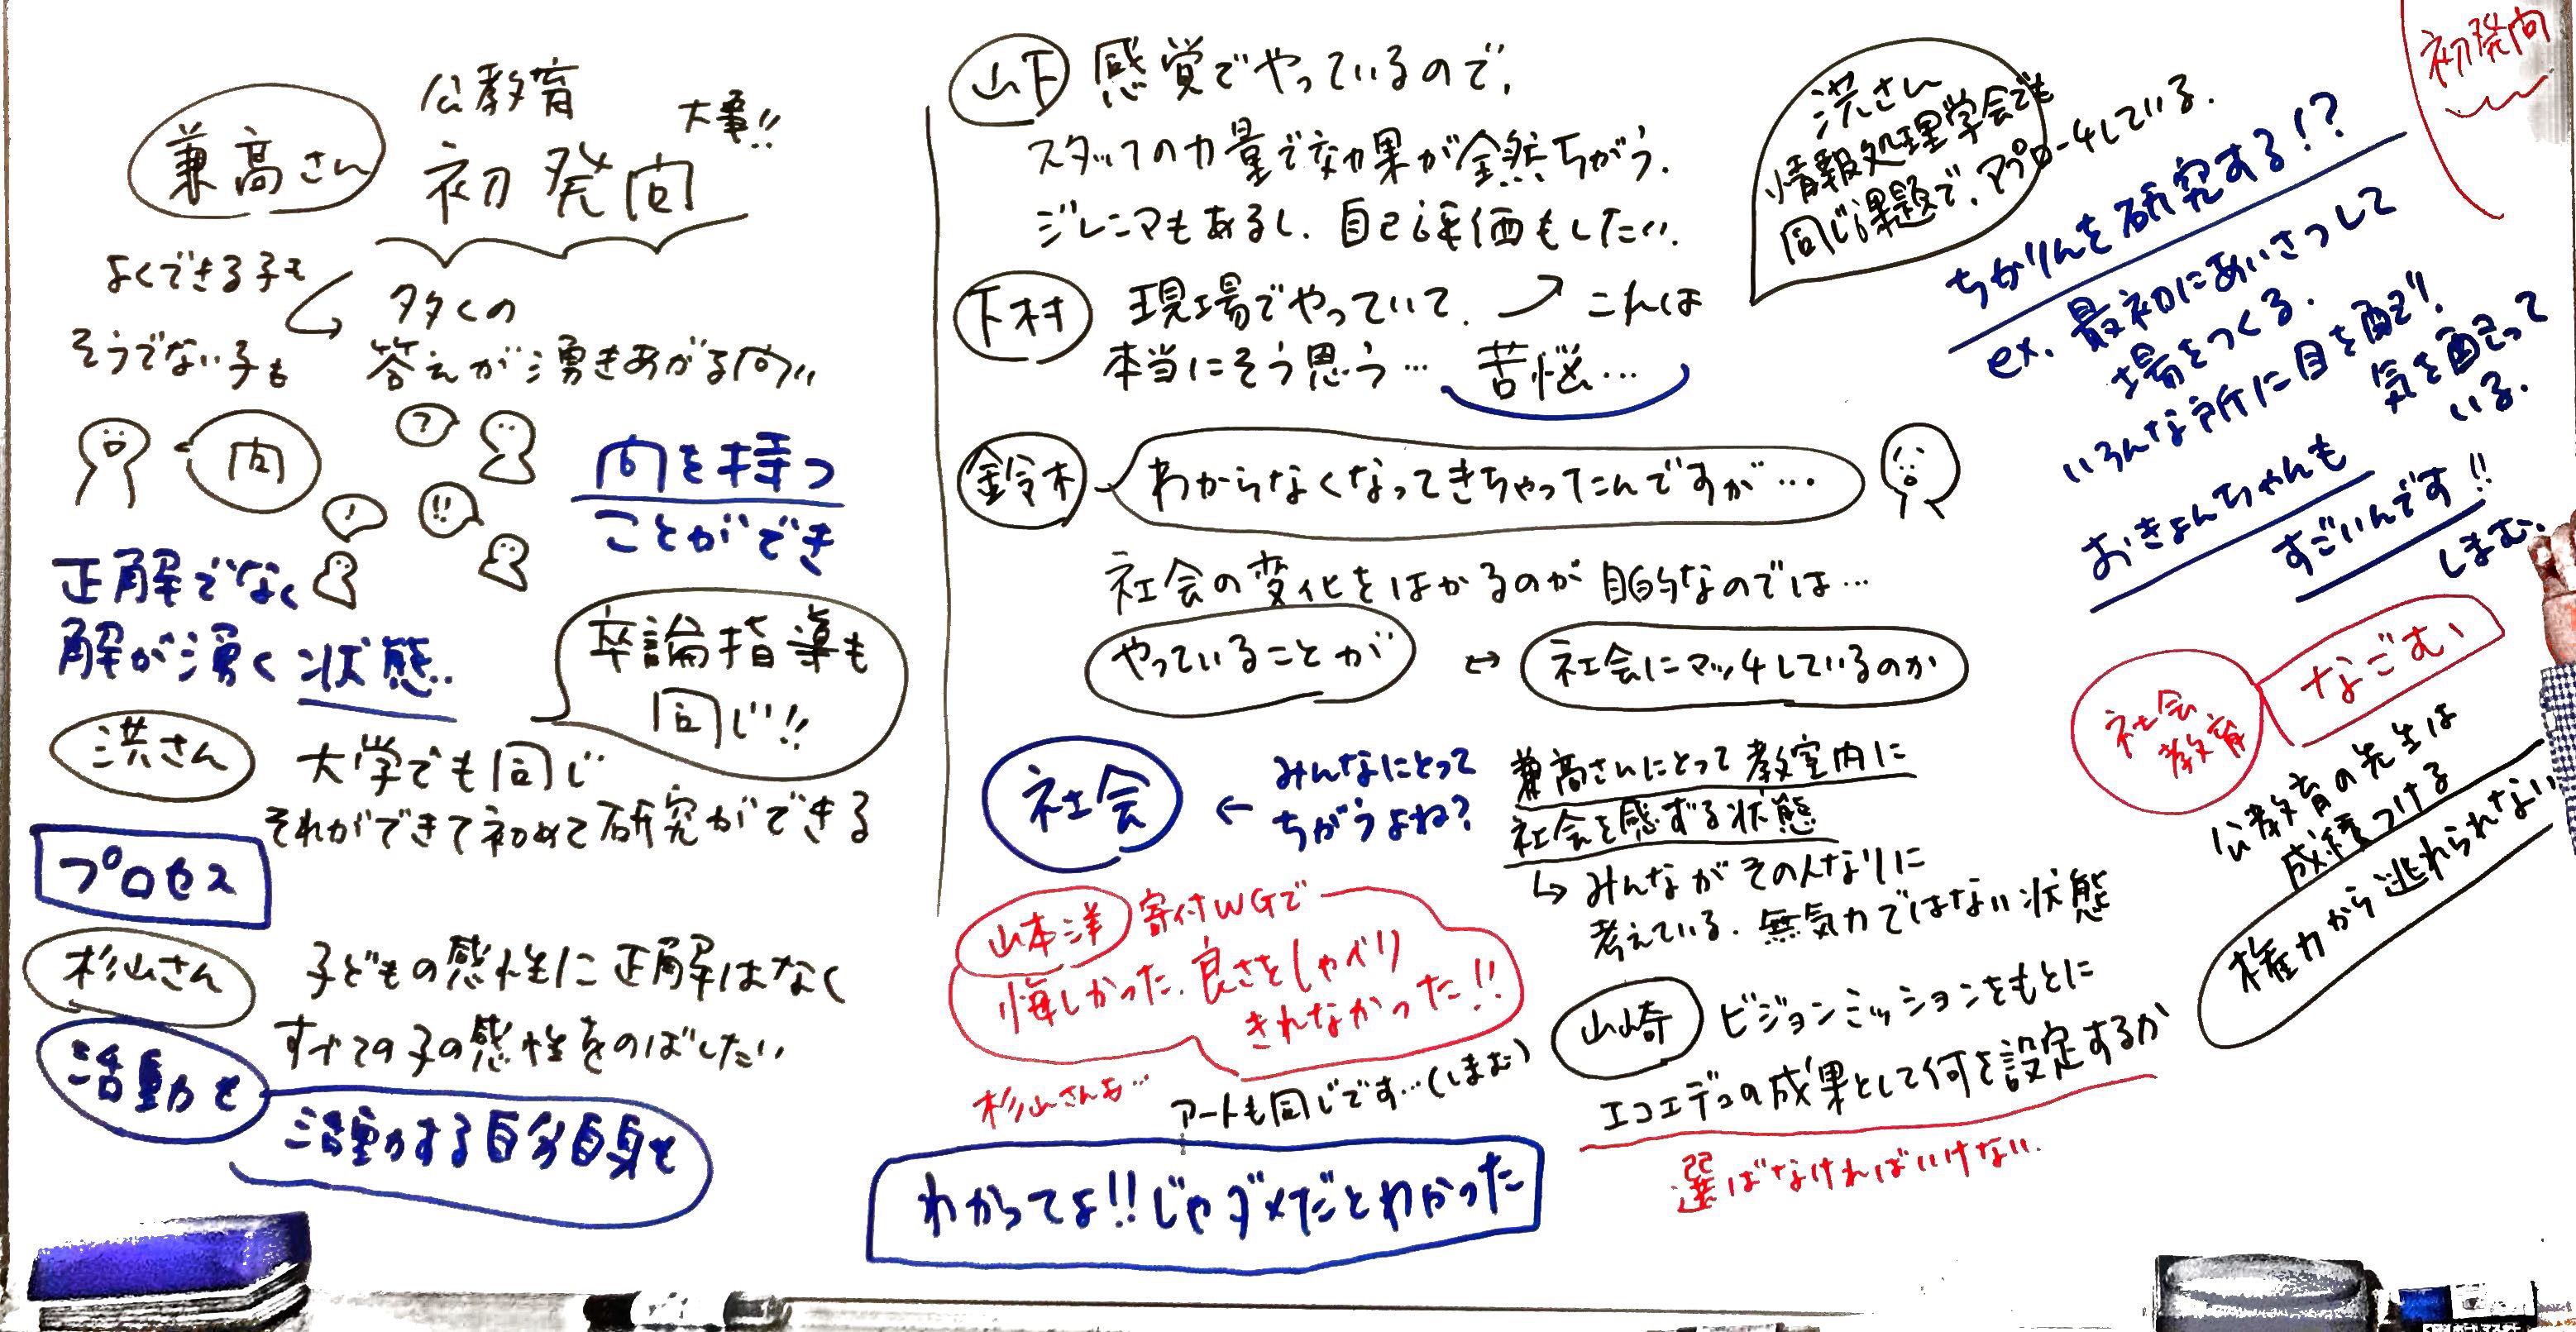 兼高さん
公教育
初発問
大事!!
よくできる子も
そうでない子も
多くの
答えが湧きあがる問い
問
?
!
!!
問を持つ
ことができ
正解でなく
解が湧く状態.
卒論指導も
同じ!!
洪さん
大学でも同じ
それができて初めて研究ができる
プロセス
杉山さん
子どもの感性に正解はなく
すべての子の感性をのばしたい
活動を
活動する自分自身を
山下
感覚でやっているので,
スタッフの力量で効果が全然ちがう.
ジレンマもあるし、自己評価もしたい.
下村
現場でやっていて.
→ これは
本当にそう思う… 苦悩…
鈴木
わからなくなってきちゃったんですが…
社会の変化をはかるのが目的なのでは…
やっていることが
↔ 社会にマッチしているのか
社会
← みんなにとって
ちがうよね?
兼高さんにとって教室内に
社会を感ずる状態
↳ みんながその人なりに
考えている. 無気力ではない状態
山本洋
寄付WGで
悔しかった. 良さをしゃべり
きれなかった!!
杉山さんも…
アートも同じです…(しまむ)
わかってよ!!じゃダメだとわかった
山崎
ビジョンミッションをもとに
エコエデュの成果として何を設定するか
選ばなければいけない.
洪さん
情報処理学会でも
同じ課題で、アプローチしている.
初発問
ちかりんを研究する!?
ex. 最初にあいさつして
場をつくる.
いろんな所に目を配り.
気を配って
いる.
おきょんちゃんも
すごいんです!!
しまむ.
社会
教育
なごむ
公教育の先生は
成績つける
権力から逃れられない